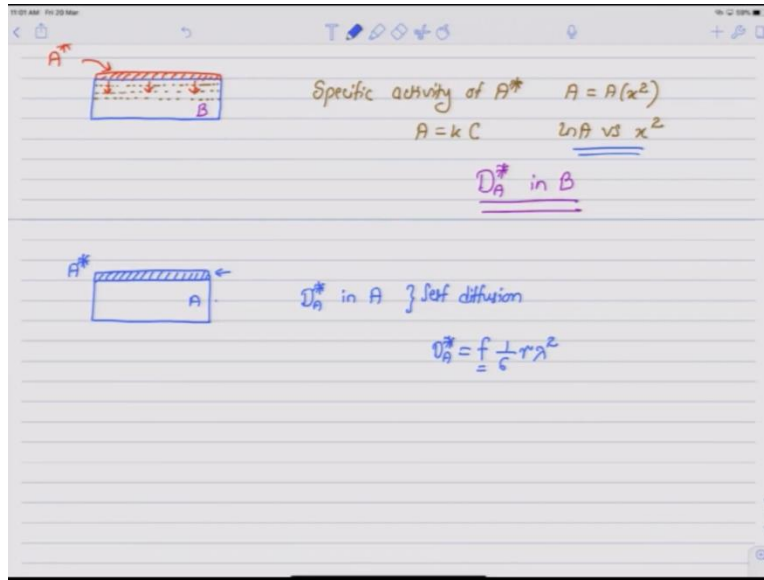 11:01 AM Fri 20 Mar
59%
A*
B
Specific activity of A* A = A(x²)
A = k C ln A vs x²
D*A in B
A*
A
D*A in A } Self diffusion
D*A = f 1/6 r λ²